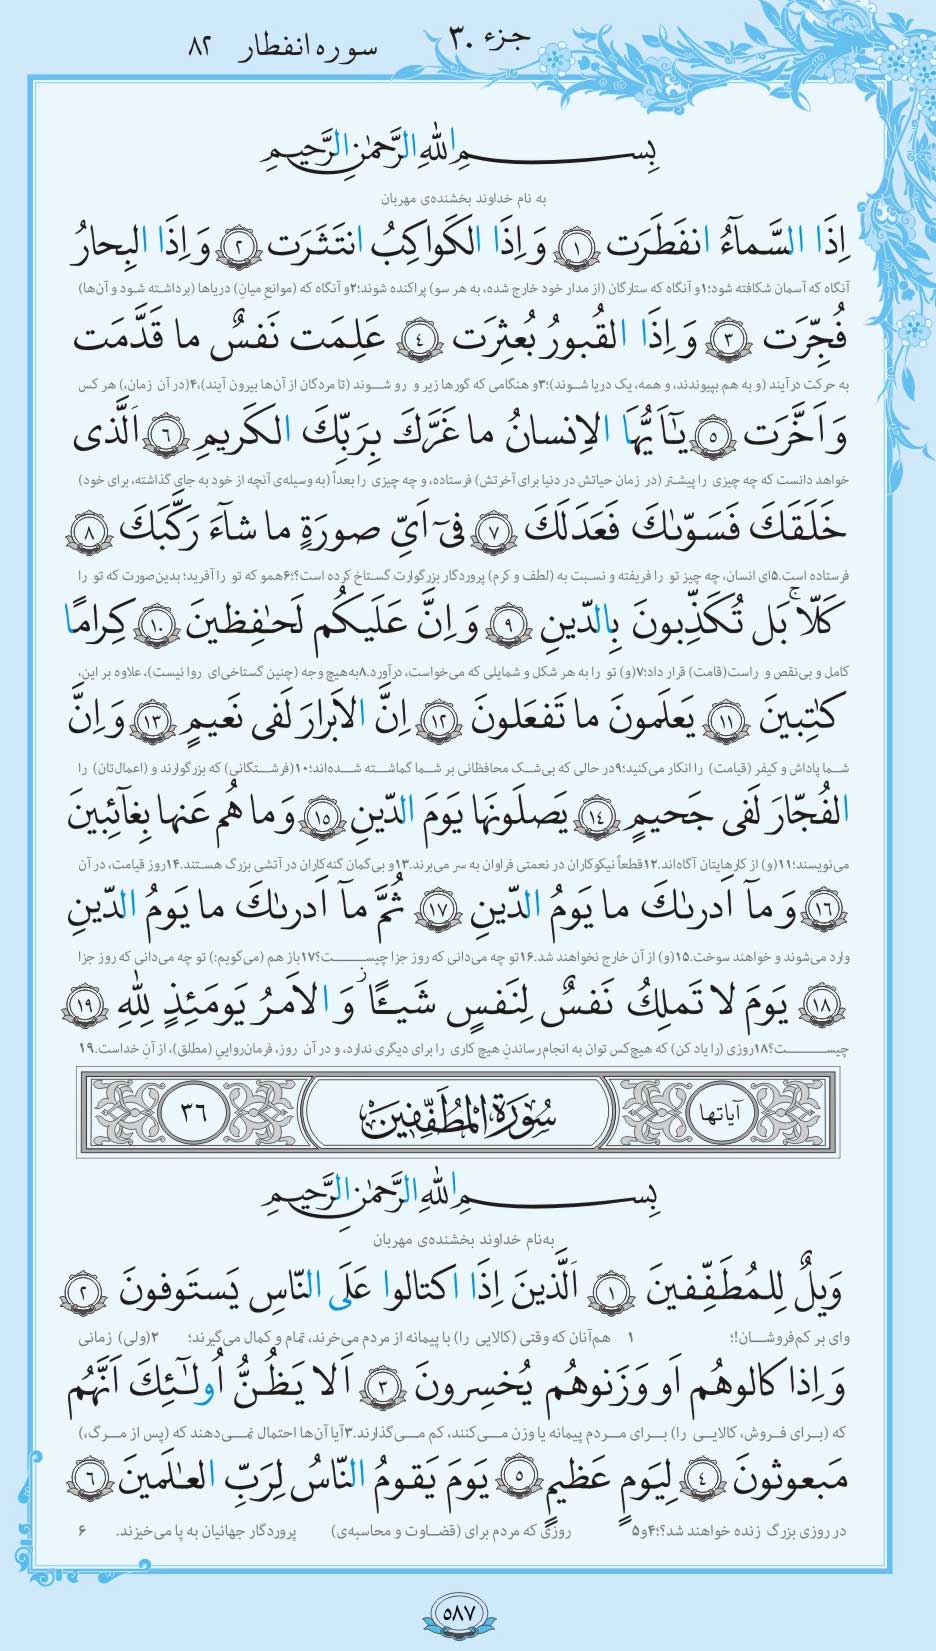 جزء ۳۰
سوره انفطار ۸۲
بِسمِ اللهِ الرَّحمٰنِ الرَّحیمِ
به نام خداوند بخشنده‌ی مهربان
اِذَا السَّمآءُ انفَطَرَت ١ وَ اِذَا الکَواکِبُ انتَثَرَت ٢ وَ اِذَا البِحارُ
آنگاه که آسمان شکافته شود؛۱و آنگاه که ستارگان (از مدار خود خارج شده، به هر سو) پراکنده شوند؛۲و آنگاه که (موانعِ میانِ) دریاها (برداشته شود و آن‌ها)
فُجِّرَت ٣ وَ اِذَا القُبورُ بُعثِرَت ٤ عَلِمَت نَفسٌ ما قَدَّمَت
به حرکت درآیند (و به هم بپیوندند، و همه، یک دریا شوند)؛۳و هنگامی که گورها زیر و رو شوند (تا مردگان از آن‌ها بیرون آیند)،۴(در آن زمان،) هر کس
وَ اَخَّرَت ٥ یٰٓاَیُّهَا الاِنسانُ ما غَرَّكَ بِرَبِّكَ الکَریمِ ٦ اَلَّذی
خواهد دانست که چه چیزی را پیشتر (در زمان حیاتش در دنیا برای آخرتش) فرستاده، و چه چیزی را بعداً (به وسیله‌ی آنچه از خود به جای گذاشته، برای خود)
خَلَقَكَ فَسَوّىٰكَ فَعَدَلَكَ ٧ فیٓ اَیِّ صورَةٍ ما شآءَ رَکَّبَكَ ٨
فرستاده است.۵ای انسان، چه چیز تو را فریفته و نسبت به (لطف و کرم) پروردگار بزرگوارت گستاخ کرده است؟؛۶همو که تو را آفرید؛ بدین‌صورت که تو را
کَلّا ۚ بَل تُکَذِّبونَ بِالدّینِ ٩ وَ اِنَّ عَلَیکُم لَحٰفِظینَ ١٠ کِرامًا
کامل و بی‌نقص و راست(قامت) قرار داد؛۷(و) تو را به هر شکل و شمایلی که می‌خواست، درآورد.۸به‌هیچ وجه (چنین گستاخی‌ای روا نیست)، علاوه بر این،
کٰتِبینَ ١١ یَعلَمونَ ما تَفعَلونَ ١٢ اِنَّ الاَبرارَ لَفی نَعیمٍ ١٣ وَ اِنَّ
شما پاداش و کیفر (قیامت) را انکار می‌کنید؛۹در حالی که بی‌شک محافظانی بر شما گماشته شده‌اند؛۱۰(فرشتگانی) که بزرگوارند و (اعمال‌تان) را
الفُجّارَ لَفی جَحیمٍ ١٤ یَصلَونَها یَومَ الدّینِ ١٥ وَ ما هُم عَنها بِغآئِبینَ
می‌نویسند؛۱۱(و) از کارهایتان آگاه‌اند.۱۲قطعاً نیکوکاران در نعمتی فراوان به سر می‌برند.۱۳و بی‌گمان گنه‌کاران در آتشی بزرگ هستند.۱۴روز قیامت، در آن
١٦ وَ مآ اَدرىٰكَ ما یَومُ الدّینِ ١٧ ثُمَّ مآ اَدرىٰكَ ما یَومُ الدّینِ
وارد می‌شوند و خواهند سوخت.۱۵(و) از آن خارج نخواهند شد.۱۶تو چه می‌دانی که روز جزا چیست؟۱۷باز هم (می‌گویم:) تو چه می‌دانی که روز جزا
١٨ یَومَ لا تَملِكُ نَفسٌ لِنَفسٍ شَیـًٔا ۖ وَ الاَمرُ یَومَئِذٍ لِلّٰهِ ١٩
چیست؟۱۸روزی (را یاد کن) که هیچ‌کس توان به انجام رساندنِ هیچ کاری را برای دیگری ندارد، و در آن روز، فرمان‌رواییِ (مطلق)، از آنِ خداست.۱۹
آیاتها سُورَةُ المُطَفِّفِین ٣٦
بِسمِ اللهِ الرَّحمٰنِ الرَّحیمِ
به‌نام خداوند بخشنده‌ی مهربان
وَیلٌ لِلمُطَفِّفینَ ١ اَلَّذینَ اِذَا اکتالوا عَلَى النّاسِ یَستَوفونَ ٢
وای بر کم‌فروشان!؛ ۱ هم‌آنان که وقتی (کالایی را) با پیمانه از مردم می‌خرند، تمام و کمال می‌گیرند؛ ۲(ولی) زمانی
وَ اِذا کالوهُم اَو وَزَنوهُم یُخسِرونَ ٣ اَلا یَظُنُّ اُولٰٓئِكَ اَنَّهُم
که (برای فروش، کالایی را) برای مردم پیمانه یا وزن می‌کنند، کم می‌گذارند.۳آیا آن‌ها احتمال نمی‌دهند که (پس از مرگ،)
مَبعوثونَ ٤ لِیَومٍ عَظیمٍ ٥ یَومَ یَقومُ النّاسُ لِرَبِّ العٰلَمینَ ٦
در روزی بزرگ زنده خواهند شد؟؛۴و۵ روزی که مردم برای (قضاوت و محاسبه‌ی) پروردگار جهانیان به پا می‌خیزند. ۶
۵۸۷